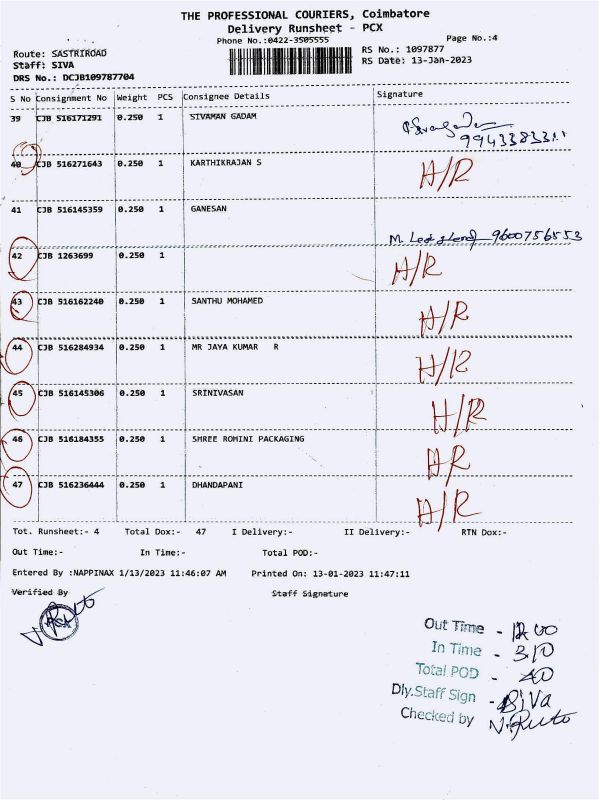 THE PROFESSIONAL COURIERS, Coimbatore
Delivery Runsheet - PCX
Phone No.:0422-3505555
Page No.:4
Route: SASTRIROAD
RS No.: 1097877
Staff: SIVA
RS Date: 13-Jan-2023
DRS No.: DCJB109787704
S No Consignment No Weight PCS Consignee Details Signature
39 CJB 516171291 0.250 1 SIVAMAN GADAM
40 CJB 516271643 0.250 1 KARTHIKRAJAN S A/R
41 CJB 516145359 0.250 1 GANESAN
9600756553
42 CJB 1263699 0.250 1 A/R
43 CJB 516162240 0.250 1 SANTHU MOHAMED A/R
44 CJB 516284934 0.250 1 MR JAYA KUMAR R A/R
45 CJB 516145306 0.250 1 SRINIVASAN A/R
46 CJB 516184355 0.250 1 SHREE ROHINI PACKAGING A/R
47 CJB 516236444 0.250 1 DHANDAPANI A/R
Tot. Runsheet:- 4 Total Dox:- 47 I Delivery:- II Delivery:- RTN Dox:-
Out Time:- In Time:- Total POD:-
Entered By :NAPPINAX 1/13/2023 11:46:07 AM Printed On: 13-01-2023 11:47:11
Verified By Staff Signature
PCX
Out Time - 12.00
In Time - 310
Total POD - 40
Dly.Staff Sign - SiVa
Checked by